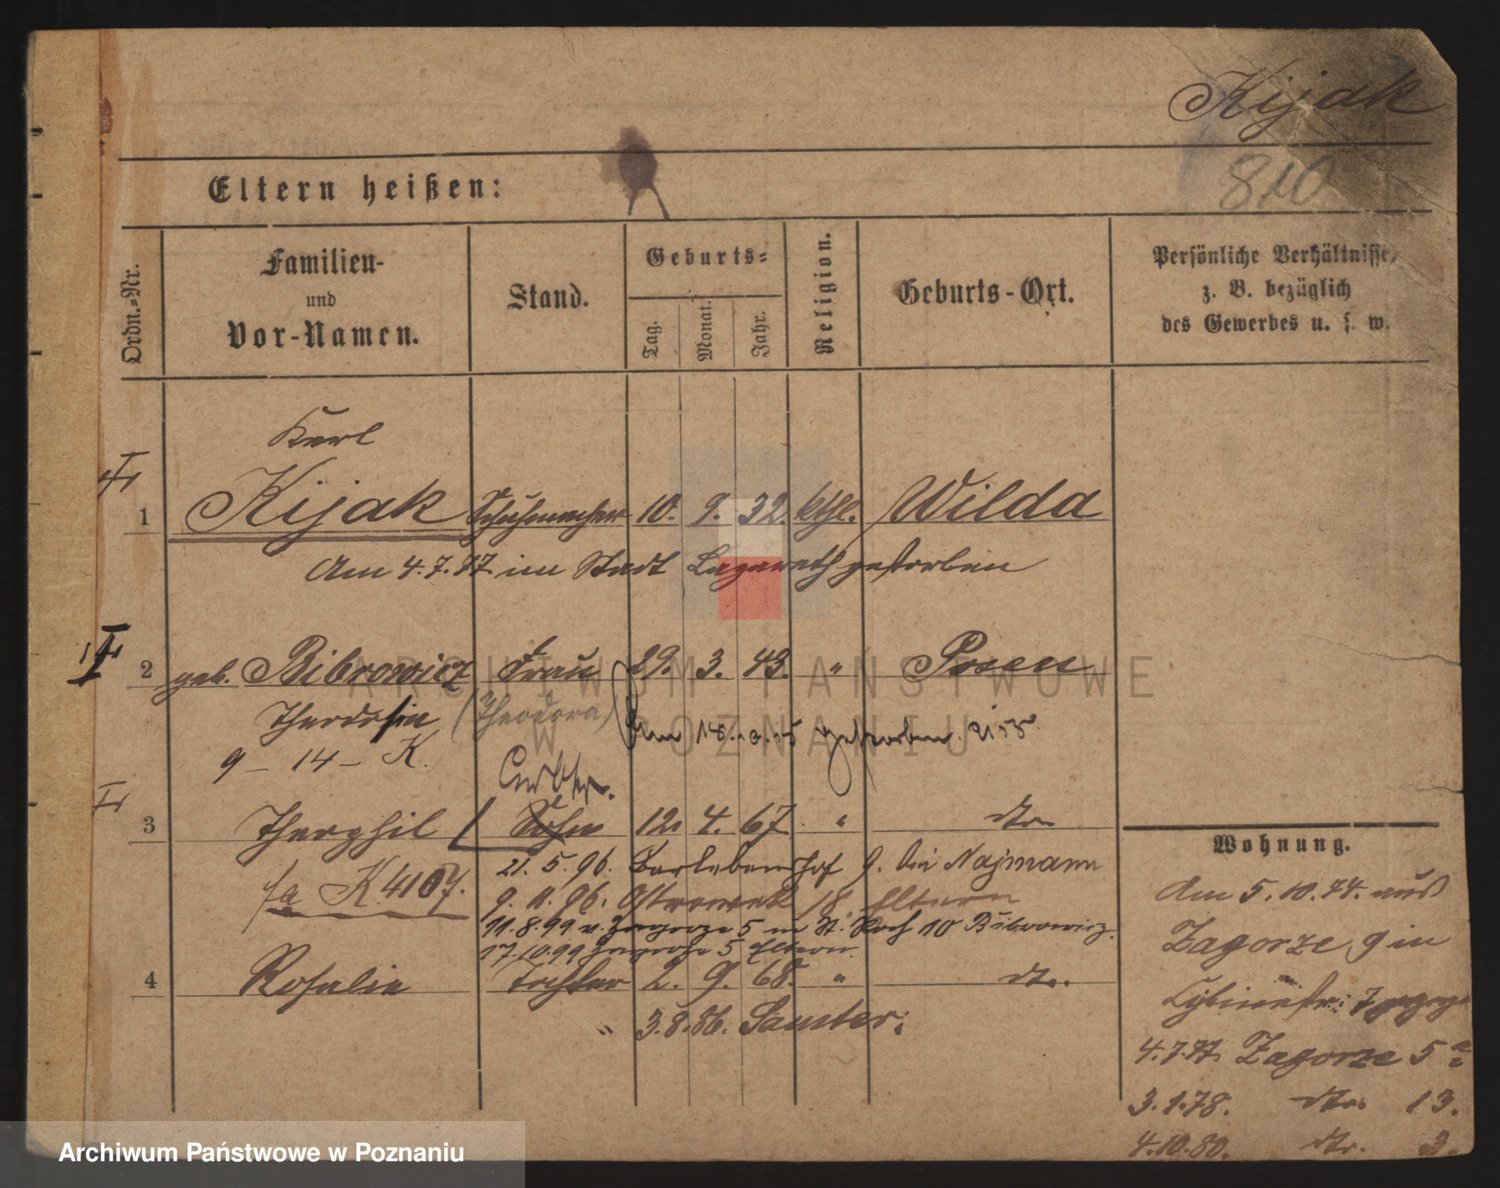 Kijak
810
Eltern heißen:
Ordn.-Nr.
Familien- und Vor-Namen.
Stand.
Geburts-
Tag.
Monat.
Jahr.
Religion.
Geburts-Ort.
Persönliche Verhältnisse,
z. B. bezüglich
des Gewerbes u. s. w.
Karl
1 Kijak Schuhmacher 10. 9. 32. kthl. Wilda
Am 4.7.77 im Stadt Lazareth gestorben
2 geb. Bibrowicz Frau 29. 3. 43. " Posen
Theodosia (Theodora) Am 18.10.15 gestorben
9 - 14 - K.
3 Theophil Sohn 12. 4. 67 " dto
21. 5. 96. Bartlebenshof 9. bei Najmann
fa K 4107. 9. 11. 96. Ostrowek 18 Eltern
11.8.99 v. Zagorze 5 n. St. Roch 10 Bibrowicz.
17.10.99 Zagorze 5 Eltern
4 Rosalie Tochter 2. 9. 68. " dto.
3.8.86. Samter.
Wohnung.
Am 5.10.74. aus
Zagorze 9 in
4.7.77. Zagorze 5
3.1.78. dto. 13.
4.10.80. dto. 3.
ARCHIWUM PAŃSTWOWE
W POZNANIU
Archiwum Państwowe w Poznaniu